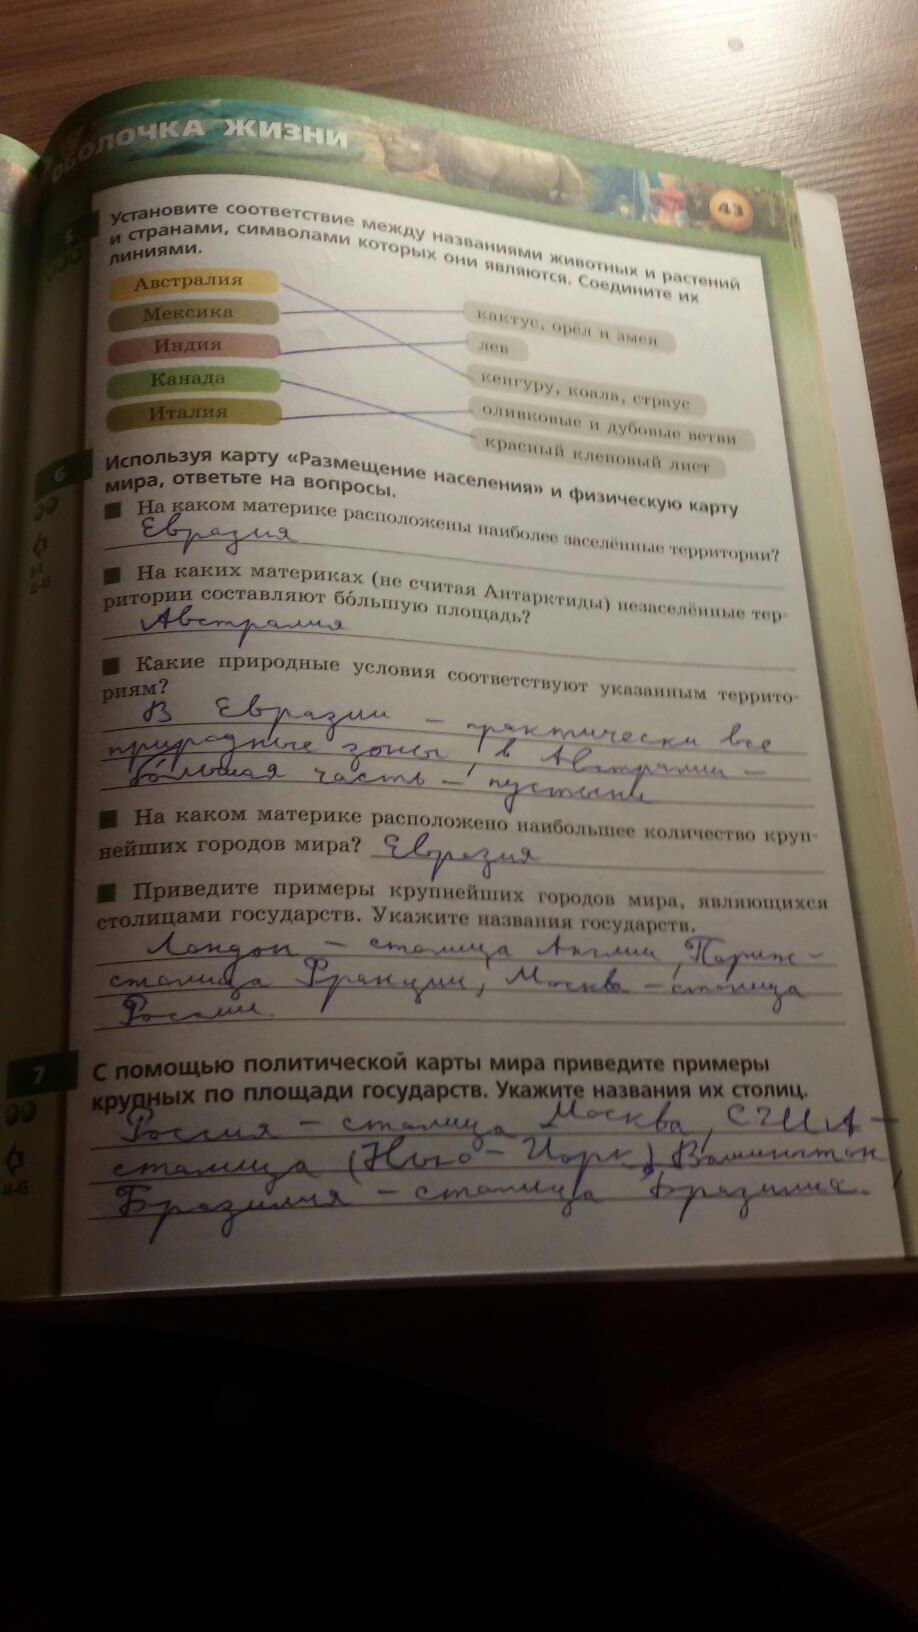 ОБОЛОЧКА ЖИЗНИ
43
5
Установите соответствие между названиями животных и растений
и странами, символами которых они являются. Соедините их
линиями.
Австралия
Мексика
Индия
Канада
Италия
кактус, орёл и змея
лев
кенгуру, коала, страус
оливковые и дубовые ветви
красный кленовый лист
6
Используя карту «Размещение населения» и физическую карту
мира, ответьте на вопросы.
На каком материке расположены наиболее заселённые территории?
Евразия
На каких материках (не считая Антарктиды) незаселённые тер-
ритории составляют бо́льшую площадь?
Австралия
Какие природные условия соответствуют указанным террито-
риям?
В Евразии – практически все
природные зоны, в Австралии –
бо́льшая часть – пустыни
На каком материке расположено наибольшее количество круп-
нейших городов мира? Евразия
Приведите примеры крупнейших городов мира, являющихся
столицами государств. Укажите названия государств.
Лондон – столица Англии, Париж –
столица Франции, Москва – столица
России.
7
С помощью политической карты мира приведите примеры
крупных по площади государств. Укажите названия их столиц.
Россия – столица Москва, США –
столица (Нью-Йорк), Вашингтон
Бразилия – столица Бразилиа.